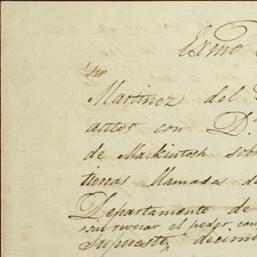 Exmo
Sor
Martinez del
autos con D.
de Mackintosh sob
tierras llamadas d
Departamento de
sin revocar el poder con
Supuesto, decimo